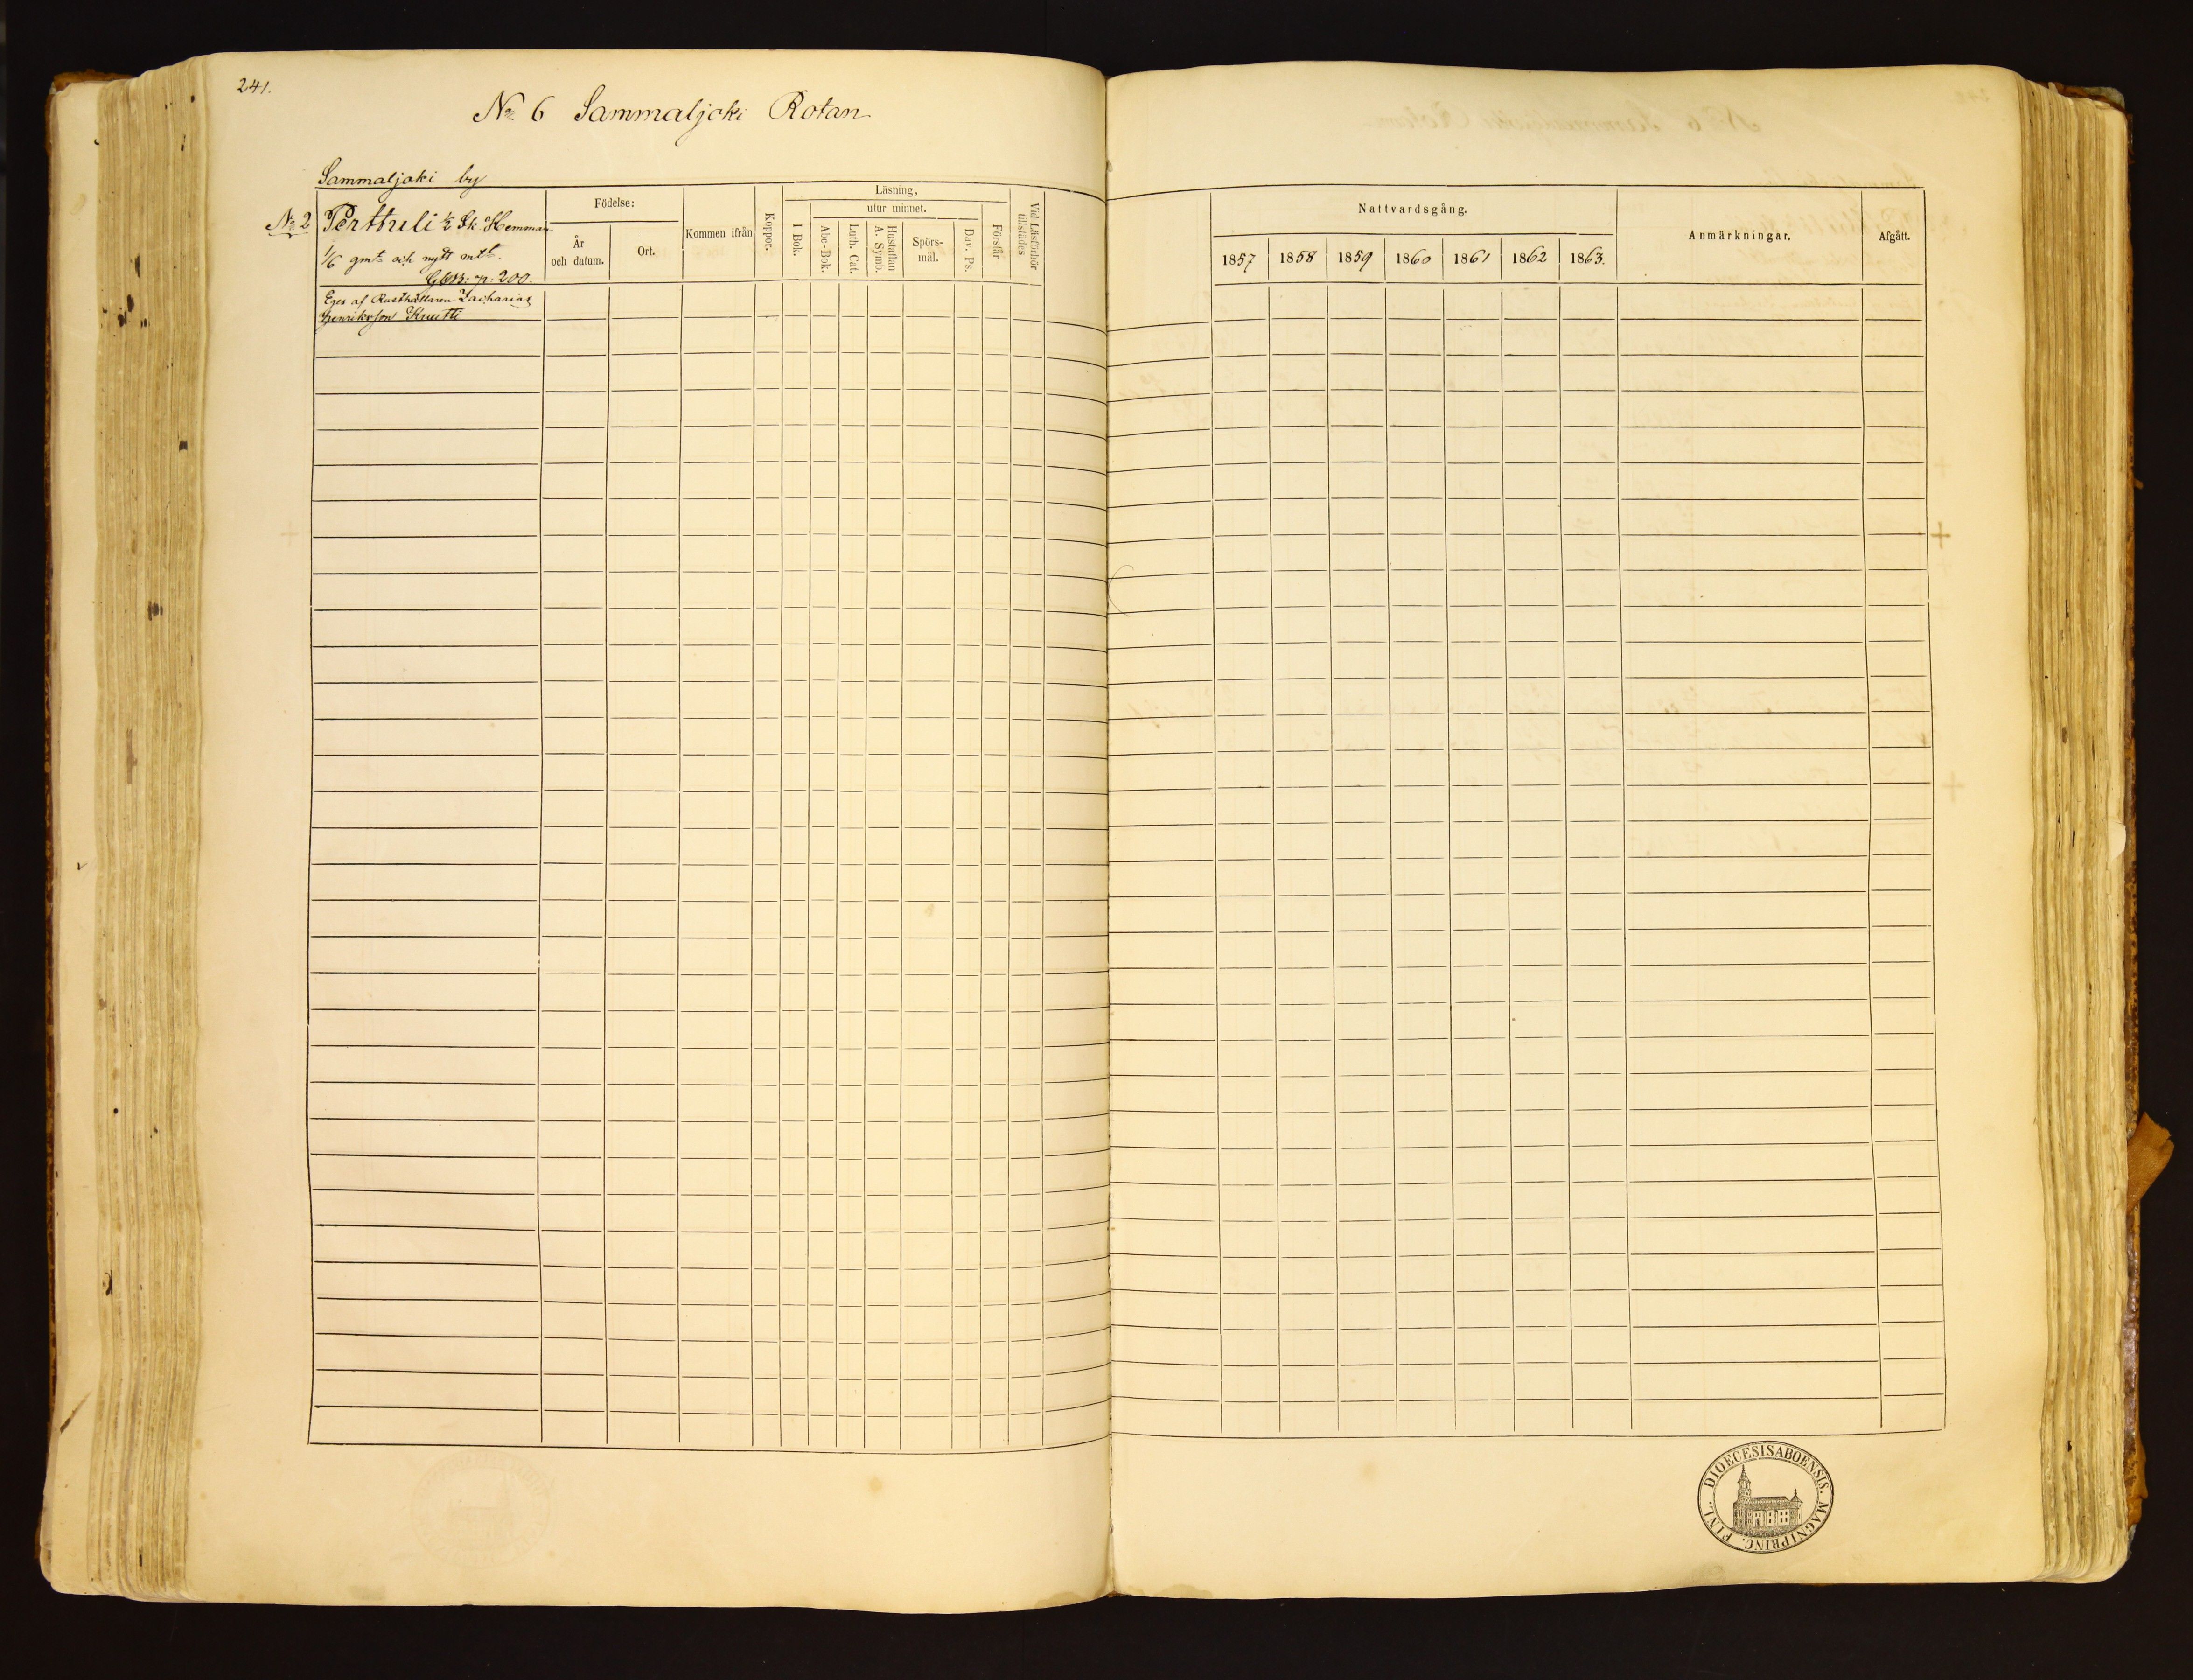 241.
No 6 Sammaljoki Rotan
Sammaljoki by
No 2 Perttuli ½ Sk. Hemman
1/6 gmt och nytt mtl.
p: 200.
Eges af Rusthållaren Zacharias
Henriksson Knuutti
Födelse:
År
och datum.
Ort.
Kommen ifrån
Koppor.
Läsning,
utur minnet.
I Bok.
Abc-Bok.
Luth. Cat.
Hustaflan
A. Symb.
Spörs-
mål.
Dav. Ps.
Förstår
Vid Läsförhör
tillstädes
Nattvardsgång.
1857 1858 1859 1860 1861 1862 1863.
Anmärkningar.
Afgått.
DIOECESIS ABOENSIS. MAGNI PRINC. FINL.